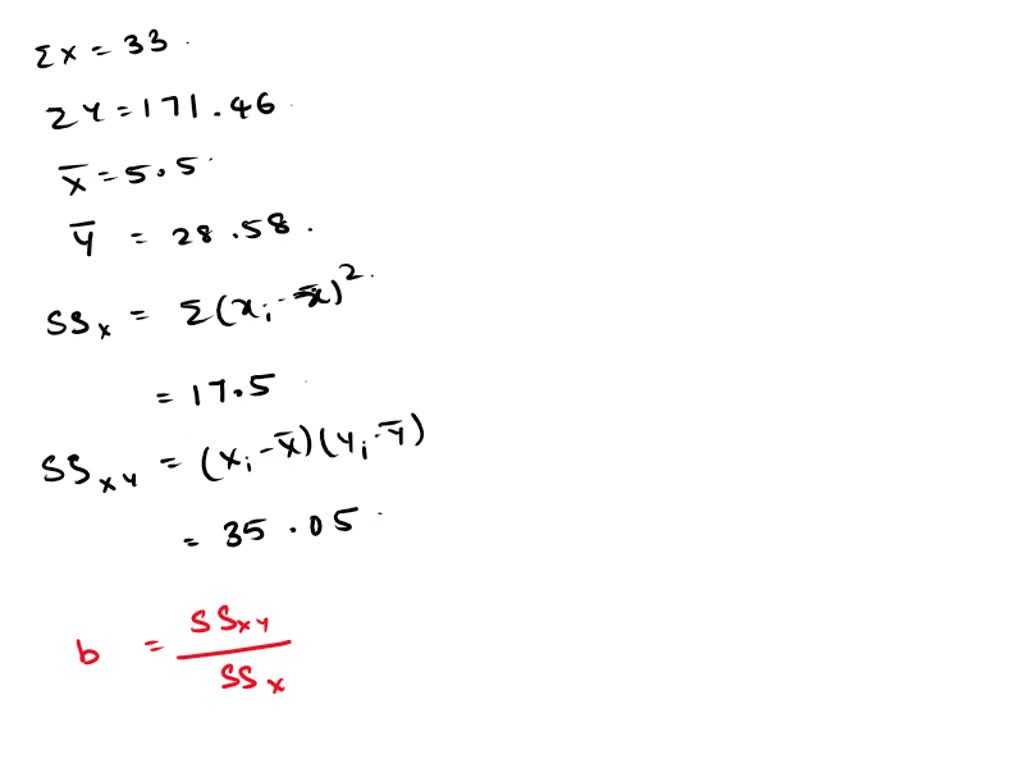 Σx = 33
Σy = 171.46
x̄ = 5.5
ȳ = 28.58.
SSx = Σ(xi - x̄)²
= 17.5
SSxy = (xi - x̄)(yi - ȳ)
= 35.05
b = SSxy / SSx